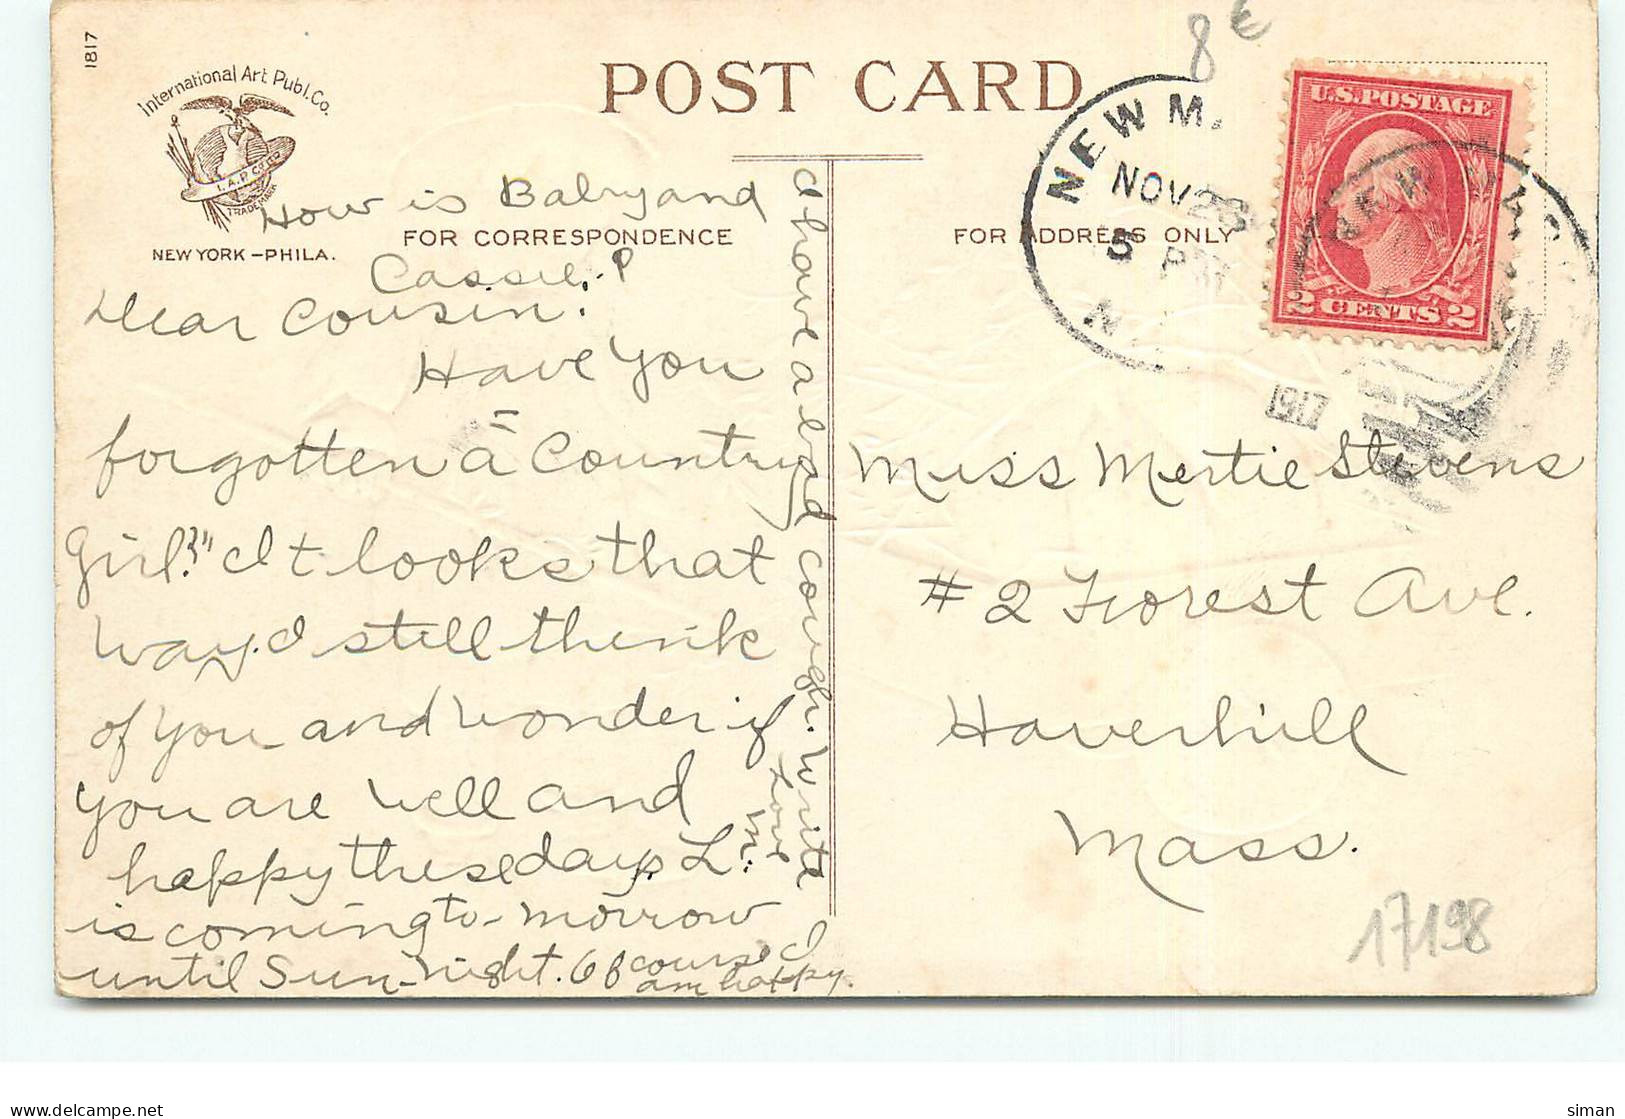 1817
International Art Publ. Co.
I. A. P. CO.
TRADEMARK
NEW YORK – PHILA.
POST CARD
FOR CORRESPONDENCE
FOR ADDRESS ONLY
8 €
NEW M.
NOV 23
5 PM
N.
1917
U.S. POSTAGE
2 CENTS 2
How is Baby and
Cassie. P
Dear Cousin:
Have you
forgotten "a Country
Girl?" It looks that
way. I still think
of you and wonder if
you are well and
happy these days. L.
is coming to-morrow
until Sun-night. Of course I
am happy.
I have a bad cough. Write
Love
M.
Miss Mertie Stevens
#2 Forest Ave.
Haverhill
Mass.
17198
www.delcampe.net
siman